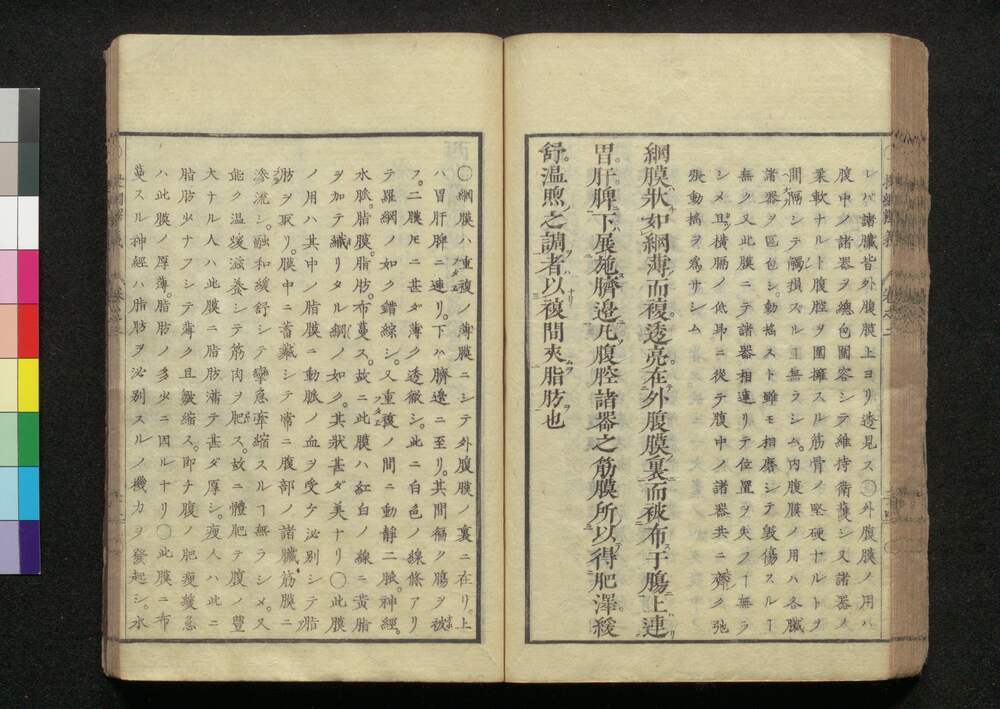 レバ諸臟皆外腹膜上ヨリ透見ス〇外腹膜ノ用ハ
腹中ノ諸器ヲ總包圍容シテ維持衞護シ又諸器ノ
柔軟ナルト腹腔ヲ圍擁スル筋骨ノ堅硬ナルトヲ
間隔シテ觸損スルヿ無ラシム。内腹膜ノ用ハ各臟
諸器ヲ區包シ。動搖スト雖モ相磨シテ毀傷スルヿ
無ク又此膜ニテ諸器相連リテ位置ヲ失フヿ無ラ
シメ且。橫膈ノ低昻ニ從テ腹中ノ諸器共ニ齊ク弛
張動搖ヲ爲サシム
網膜狀如網薄而複。透亮。在外腹膜裏而被布于腸。上連
胃。肝。脾。下展施臍邊。凡腹腔諸器之筋膜所以得肥澤緩
舒。温煦之調者以複間夾脂肪也
〇網膜ハ重複ノ薄膜ニシテ外腹膜ノ裏ニ在リ。上
ハ胃肝脾ニ連リ。下ハ臍邊ニ至リ。其間徧ク腸ヲ被
フ。二膜厇ニ甚ダ薄ク透徹シ。此ニ白色ノ線條アリ
テ羅網ノ如ク錯綜シ。又重複ノ間ニ動靜二脈。神經。
水脈。脂膜。脂肪。布蔓ス。故ニ此膜ハ紅白ノ線ニ黃脂
ヲ加テ織リタル網ノ如ク。其狀甚ダ美ナリ〇此膜
ノ用ハ其中ノ脂膜ニ動脈ノ血ヲ受ケ泌別シテ脂
肪ヲ取リ膜中ニ蓄藏シテ常ニ腹部ノ諸臟筋膜ニ
滲流シ。融和緩舒シテ攣急牽縮スルヿ無ラシメ。又
能ク温煖滋養シテ筋肉ヲ肥ス。故ニ體肥テ腹ノ豐
大ナル人ハ此膜ニ脂肪滿テ甚ダ厚シ。瘦人ハ此ニ
脂肪少ナフシテ薄ク且皺縮ス。即チ腹ノ肥瘦緩急
ハ此膜ノ厚薄。脂肪ノ多少ニ因ルナリ〇此膜ニ布
蔓スル神經ハ脂肪ヲ泌別スルノ機力ヲ發起シ。水